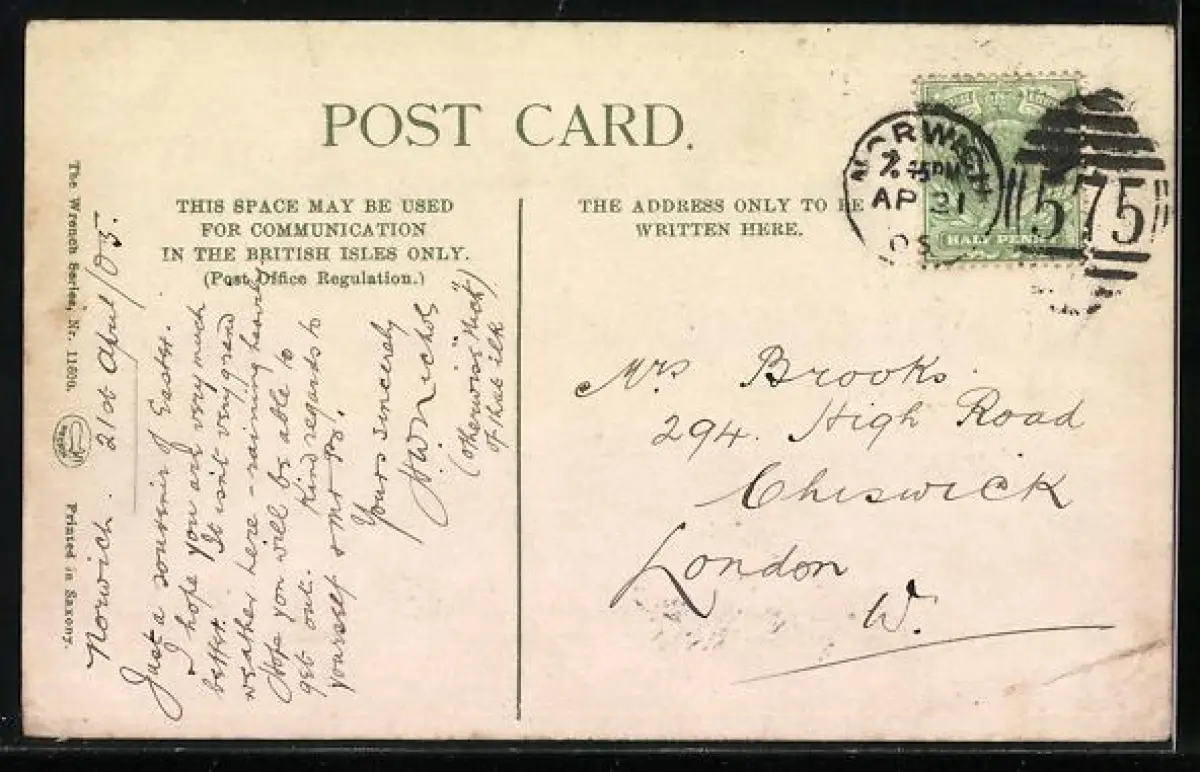 POST CARD.
THIS SPACE MAY BE USED
FOR COMMUNICATION
IN THE BRITISH ISLES ONLY.
(Post Office Regulation.)
THE ADDRESS ONLY TO BE
WRITTEN HERE.
NORWICH
7.45PM
AP 21
05
575
HALF PENNY
The Wrench Series, Nr.
Printed in Saxony.
Norwich. 21st April/05.
Just a souvenir of Easter.
I hope you are very much
better. It isn't very grand
weather here - raining heavily
Hope you will be able to
get out. Kind regards to
yourself & Mr
Yours sincerely
Nichols
(otherwise "Nick")
of that ilk
Mrs Brooks.
294. High Road
Chiswick
London
W.